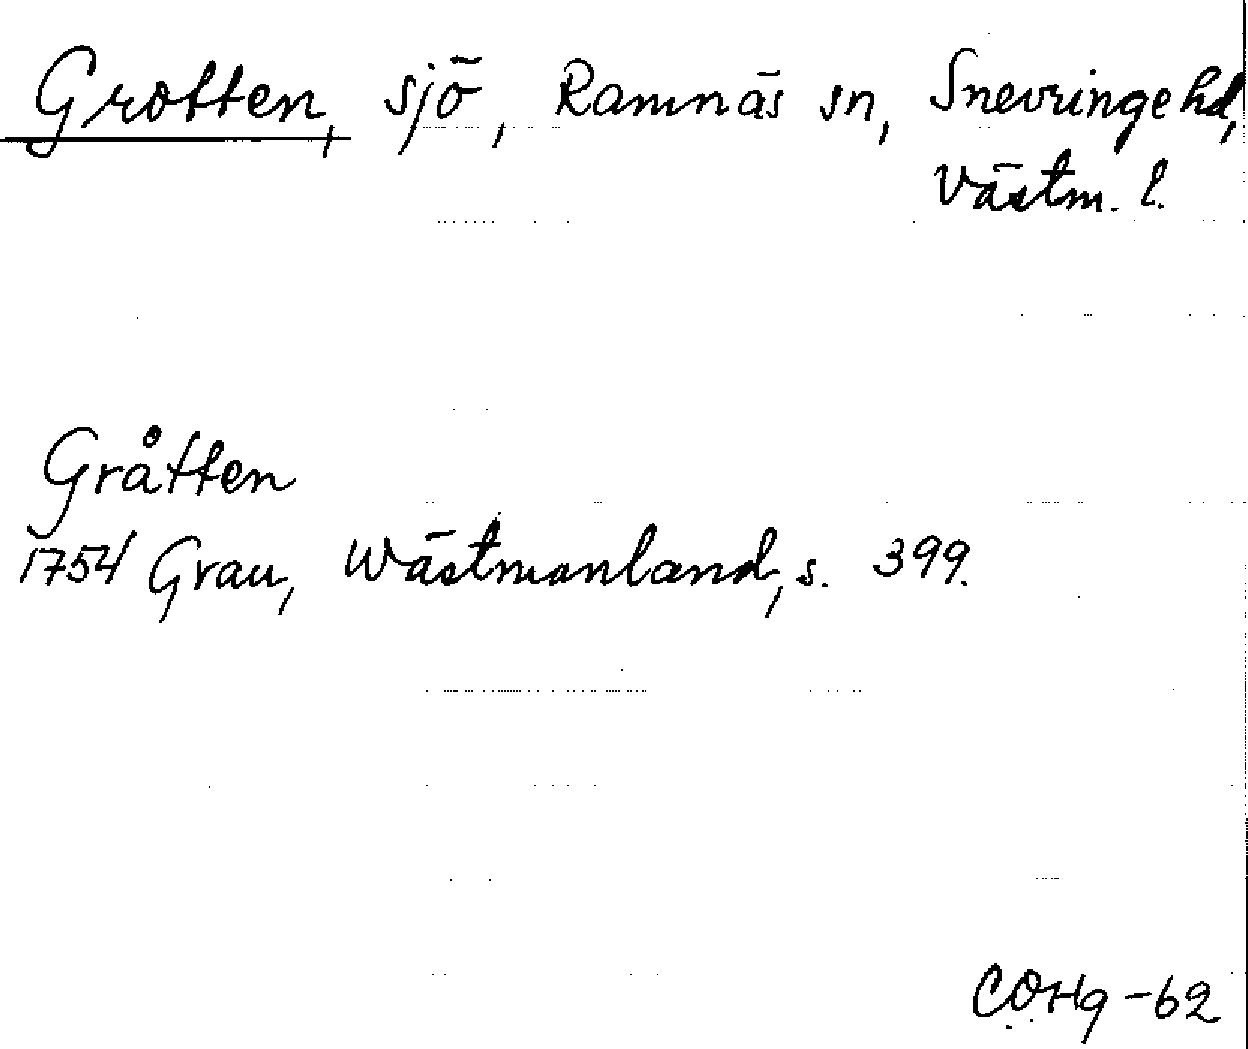 Grotten, sjö, Ramnäs sn, Snevringe hd,
Västm. l.
Gråtten
1754 Grau, Wästmanland, s. 399.
COHg -62